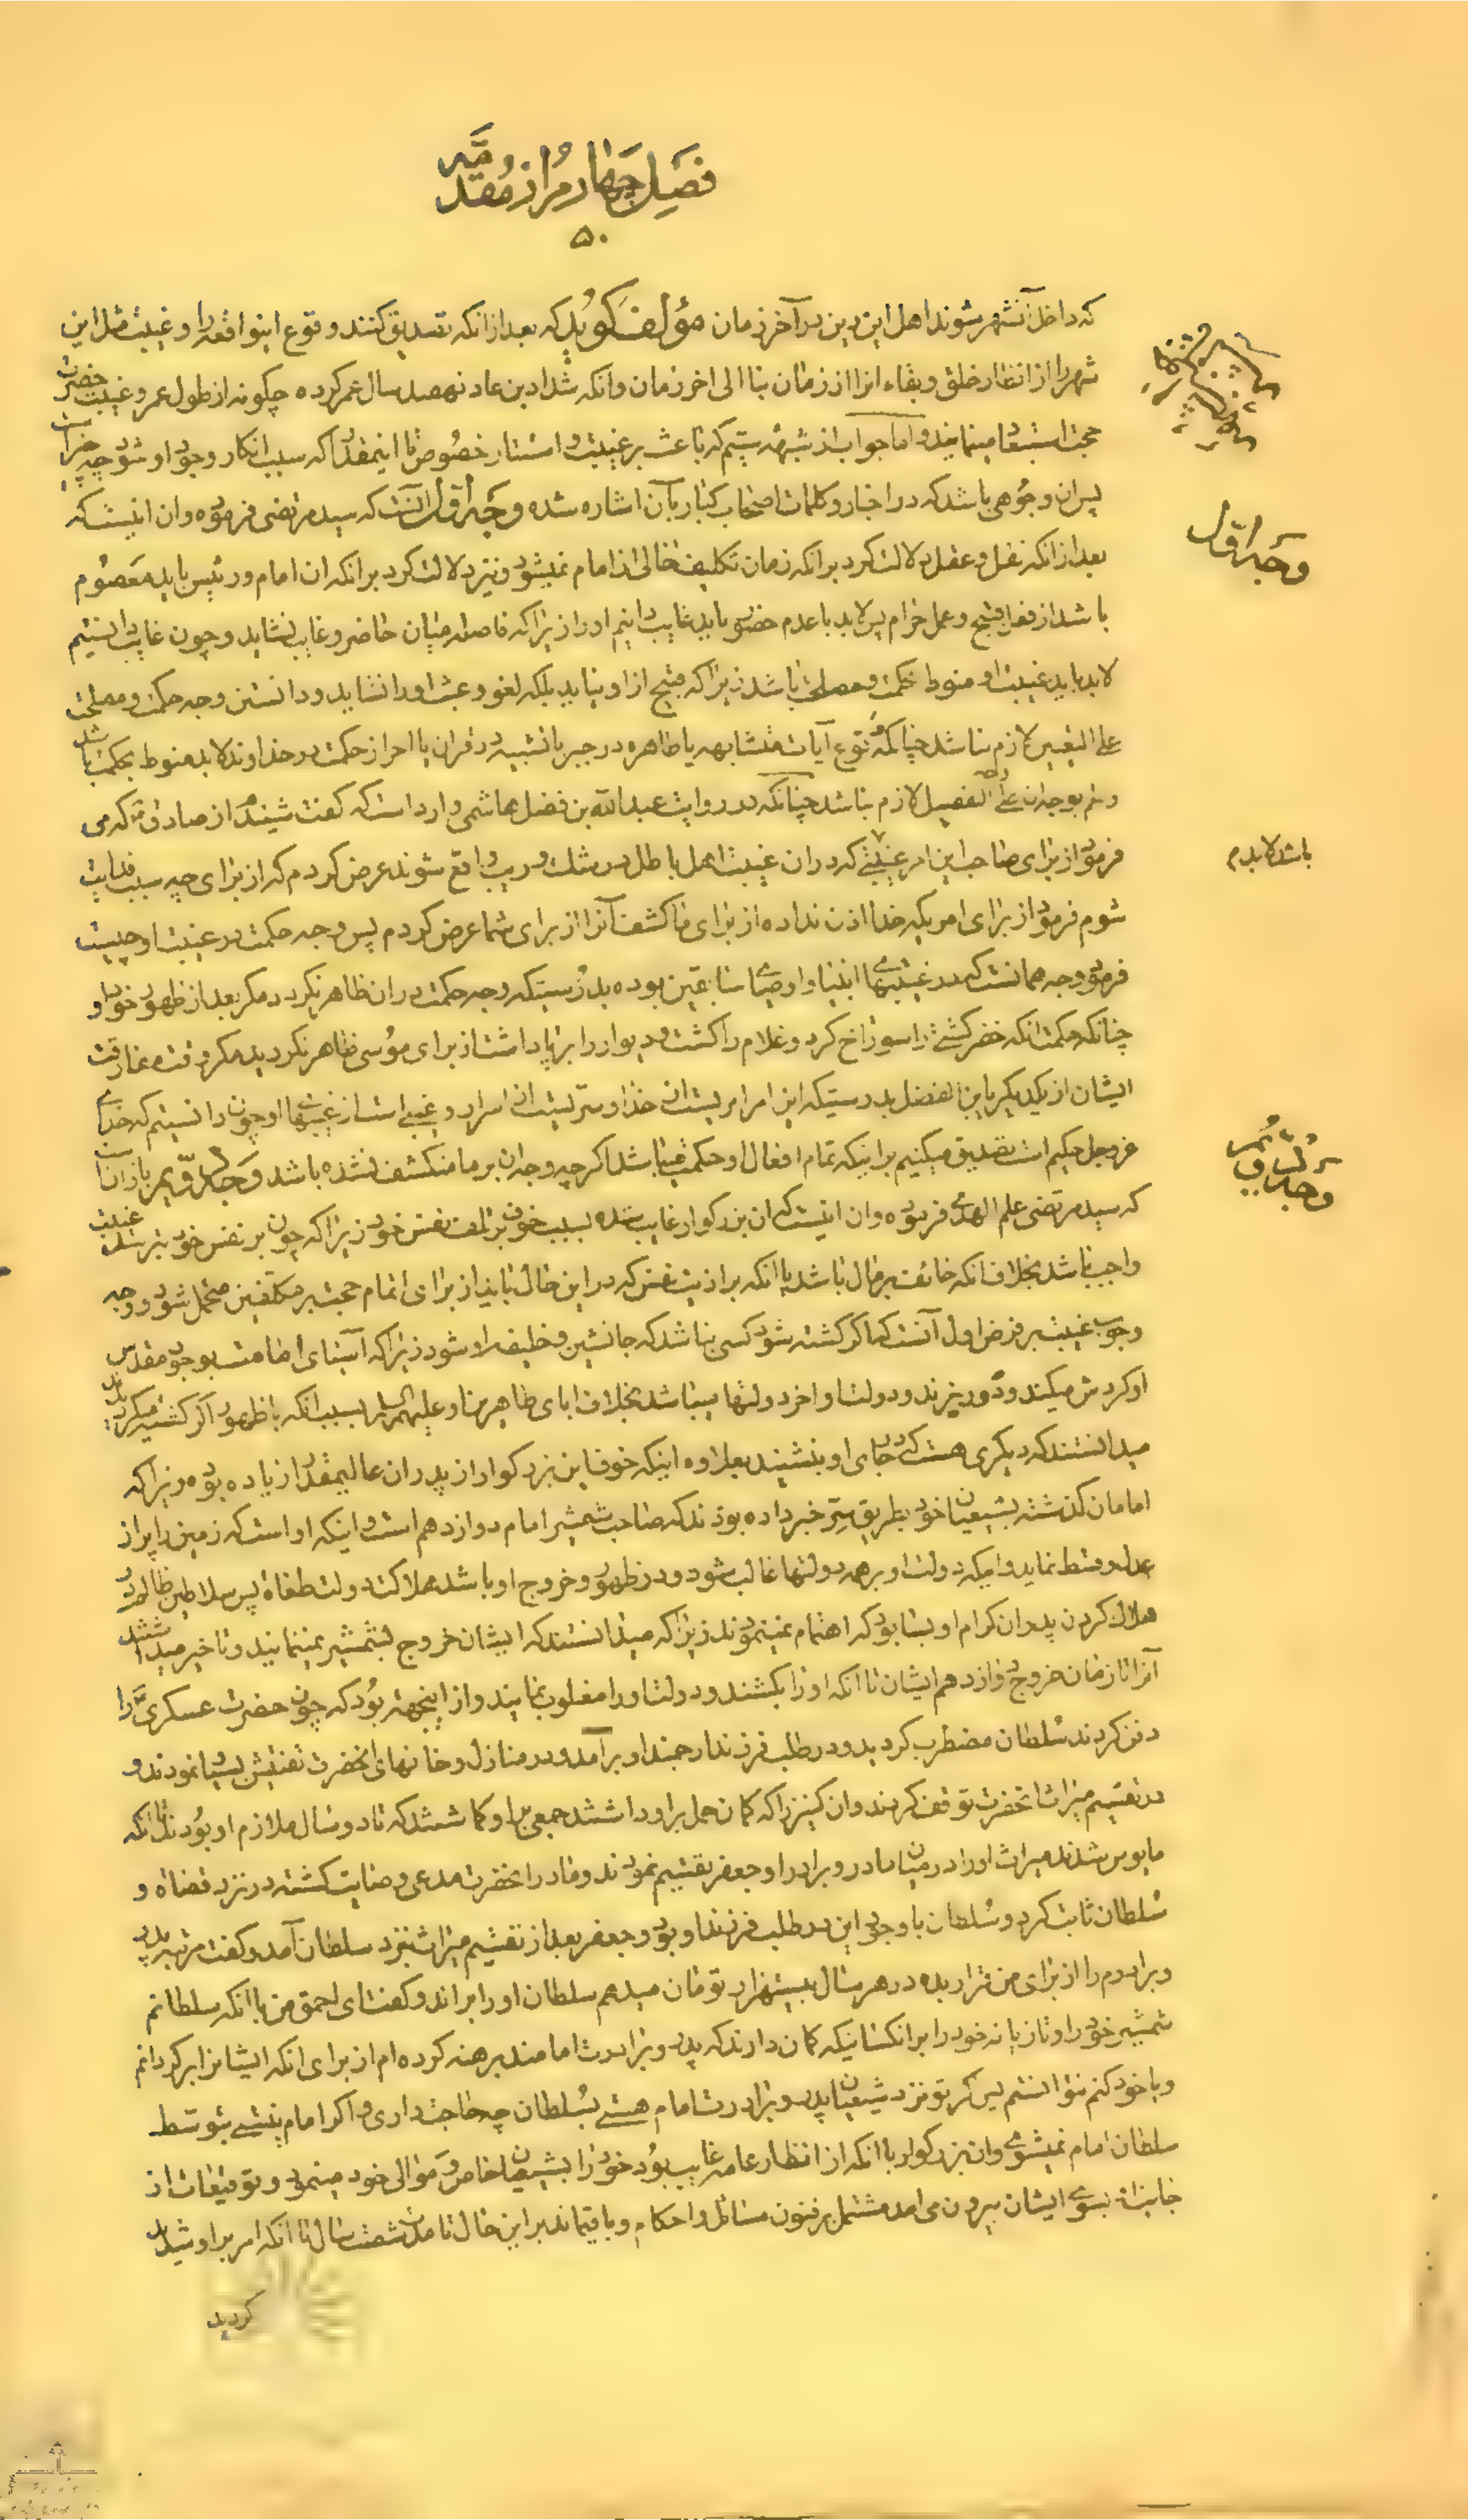 فصل چهارم از مقدمه
۵۰
که داخل آنشهر شوند اهل این دین در آخر زمان مؤلف کوید که بعد از انکه تصدیق کنند وقوع اینواقعه را و غیبت مثل این
شهر را از انظار خلق و بقاء انرا از زمان بنا الی اخر زمان وانکه شداد بن عاد نهصد سال عمر کرده چکونه از طول عمر و غیبت حضرت
حجت استبعاد مینمایند و اما جواب از شبهه سیم که باعث بر غیبت و استتار خصوص تا اینمقدار که سبب انکار وجود او شود چه چیز است
پس ان وجوهی باشد که در اخبار و کلمات اصحاب کبار بآن اشاره شده وجه اول آنست که سید مرتضی فرموده وان اینست که
وجه اول
بعد از انکه نقل و عقل دلالت کرد بر انکه زمان تکلیف خالی از امام نمیشود و نیز دلالت کرد بر انکه ان امام و رئیس باید معصوم
باشد از فعل قبیح و عمل حرام پس لابد با عدم حضور باید غایب دانیم او را زیرا که فاصله میان حاضر و غایب نشاید و چون غایب دانستیم
لابد باید غیبت او منوط بحکمت و مصلحتی باشد زیرا که قبیح از او نیاید بلکه لغو و عبث او را نشاید و دانستن وجه حکمت و مصلحت
علی التعیین لازم نباشد چنانکه وقوع آیات متشابهه یا ظاهره در جبر یا تشبیه در قران با احراز حکمت در خداوند لابد منوط بحکمت باشد
و علم بوجه ان علی التفصیل لازم نباشد چنانکه در روایت عبدالله بن فضل هاشمی وارد است که کفت شنیدم از صادق ع که می
فرمود از برای صاحب این امر غیبتی که در ان غیبت اهل باطل در شک و ریب واقع شوند عرض کردم که از برای چه سبب فدایت
باشد لابدم
شوم فرمود از برای امریکه خدا اذن نداده از برای ما کشف آنرا از برای شما عرض کردم پس وجه حکمت در غیبت او چیست
فرمود وجه همانست که در غیبتهای انبیا و اوصیای سابقین بوده بدرستیکه وجه حکمت در ان ظاهر نکردد مکر بعد از ظهور خود او
چنانکه حکمت انکه خضر کشتی را سوراخ کرد و غلام را کشت و دیوار را برپا داشت از برای موسی ظاهر نکردید مکر وقت مفارقت
ایشان از یکدیکر یابن الفضل بدرستیکه این امر امریست از خدا و سریست از اسرار و غیبی است از غیبهای او چون دانستیم که خدای
عز وجل حکیم است تصدیق میکنیم بر اینکه تمام افعال او حکمت باشد اکر چه وجه ان بر ما منکشف نشده باشد وجه دویم باز انست
وجه دویم
که سید مرتضی علم الهدی فرموده وان اینست که ان بزرکوار غایب شده بسبب خوف بر تلف نفس خود زیرا که چون بر نفس خود بترسد غیبت
واجب باشد بخلاف انکه خائف بر مال باشد یا انکه بر اذیت نفس که در این حال باید از برای اتمام حجت بر مکلفین متحمل شود و وجه
وجوب غیبت بر فرض اول آنست که اکر کشته شود کسی نباشد که جانشین و خلیفه او شود زیرا که آسیای امامت بوجود مقدس
او کردش میکند و دور میزند و دولت او اخر دولتها میباشد بخلاف ابای طاهرین او علیهم السلام بسبب انکه با ظهور اکر کشته میکردیدند
میدانستند که دیکری هست که در جای او بنشیند بعلاوه اینکه خوف این بزرکوار از پدران عالیمقدار زیاده بوده زیرا که
امامان کذشته بشیعیان خود بطریق ستر خبر داده بودند که صاحب شمشیر امام دوازدهم است و اینکه او است که زمین را پر از
عدل و قسط نماید و اینکه دولت او بر همه دولتها غالب شود و در ظهور و خروج او باشد هلاکت دولت طغاة پس سلاطین ظالم در
هلاک کردن پدران کرام او بسا بود که اهتمام نمینمودند زیرا که میدانستند که ایشان خروج بشمشیر نمینمایند و تاخیر میداشتند
آنرا تا زمان خروج دوازدهم ایشان تا انکه او را بکشند و دولت او را مغلوب نمایند و از اینجهة بود که چون حضرت عسکری ع را
دفن کردند سلطان مضطرب کردید و در طلب فرزند ارجمند او برآمد و در منازل و خانهای انحضرت تفتیش بسیار نمودند و
در تقسیم میراث انحضرت توقف کردند وان کنیز را که کمان حمل بر او داشتند جمعی بر او کماشتند که تا دو سال ملازم او بودند تا انکه
مایوس شدند میراث او را در میان مادر و برادر او جعفر تقسیم نمودند و مادر انحضرت مدعی وصایت کشته در نزد قضاة و
سلطان ثابت کرد و سلطان با وجود این در طلب فرزند او بود و جعفر بعد از تقسیم میراث نزد سلطان آمد و کفت مرتبه پدر
و برادرم را از برای من قرار بده در هر سال بیستهزار تومان میدهم سلطان او را براند و کفت ای احمق من با انکه سلطانم
شمشیر خود را و تازیانه خود را بر انکسانیکه کمان دارند که پدر و برادرت امامند برهنه کرده ام از برای انکه ایشانرا برکردانم
و با خود کنم نتوانستم پس اکر تو نزد شیعیان پدر و برادرت امام هستی بسلطان چه حاجت داری و اکر امام نیستی بتوسط
سلطان امام نمیشوی وان بزرکوار با انکه از انظار عامه غایب بود خود را بشیعیان خاص و موالی خود مینمود و توقیعات از
جانب او بسوی ایشان بیرون می امد مشتمل بر فنون مسائل و احکام و باقیماند بر این حال تا مدت شصت سال تا انکه امر بر او شدید
کردید